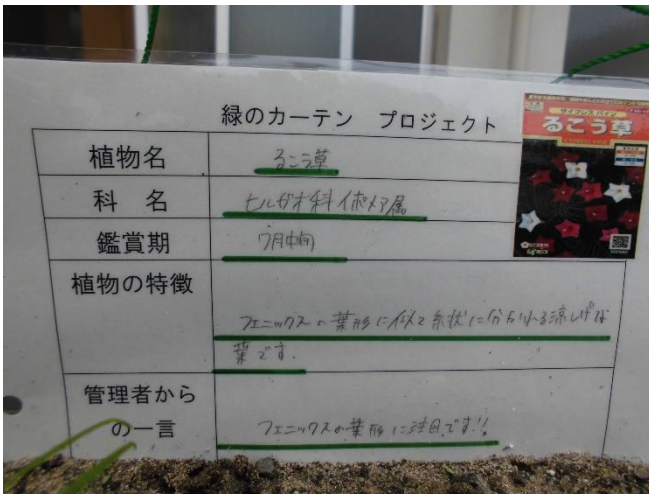 緑のカーテン プロジェクト
サイプレスバイン
るこう草
植物名
るこう草
科 名
ヒルガオ科イポメア属
鑑賞期
7月中旬
植物の特徴
フェニックスの葉形に似て糸状に分かれる涼しげな
葉です.
管理者から
の一言
フェニックスの葉形に注目です!!